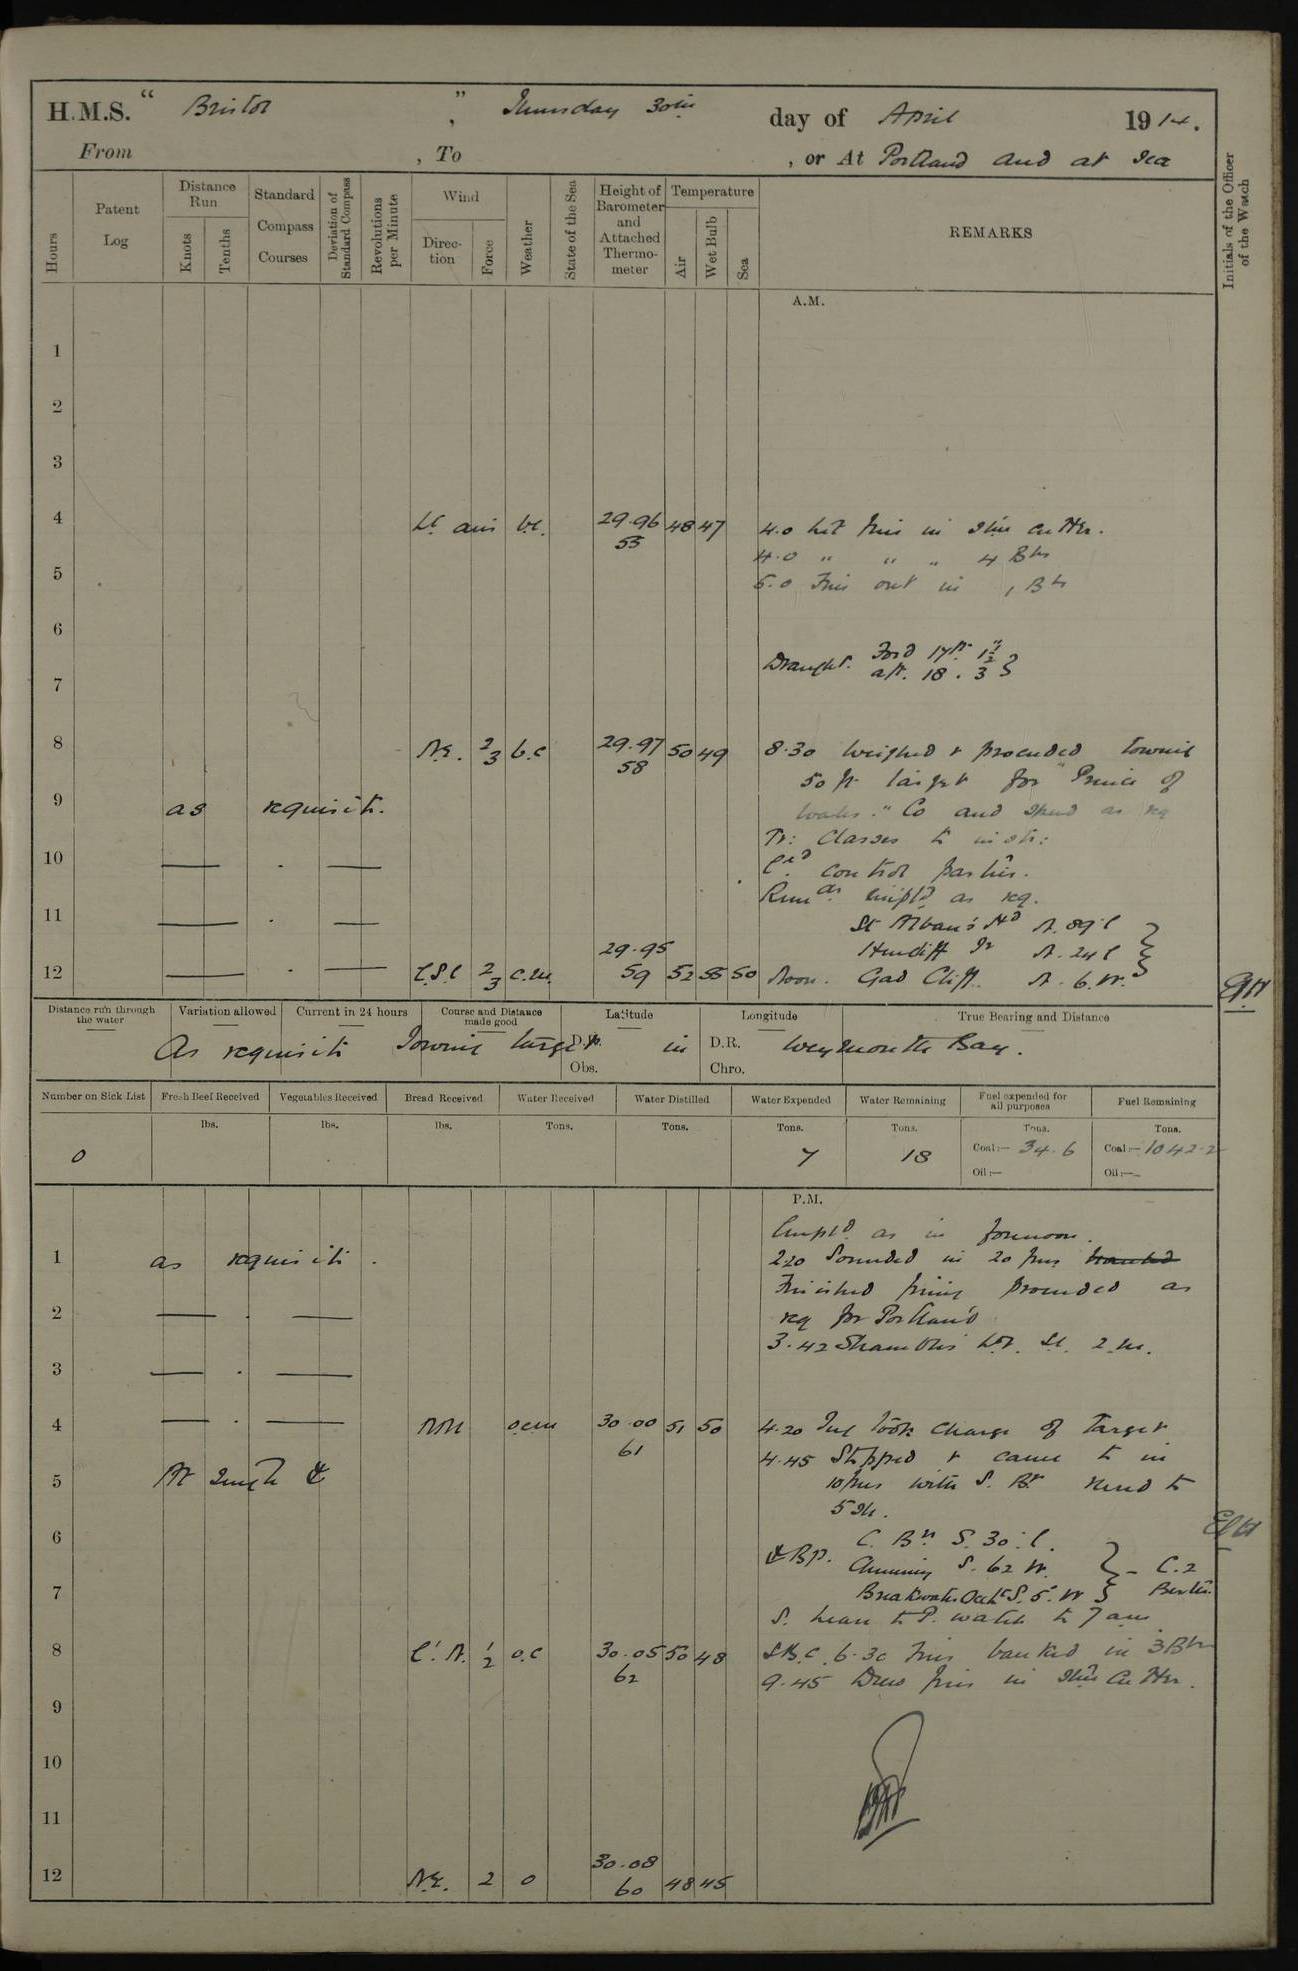 H.M.S. " Bristol " , Thursday 30th day of April 1914.
From , To , or At Portland and at Sea
Hours
Patent Log
Distance Run
Knots
Tenths
Standard Compass Courses
Deviation of Standard Compass
Revolutions per Minute
Wind
Direction
Force
Weather
State of the Sea
Height of Barometer and Attached Thermometer
Temperature
Air
Wet Bulb
Sea
REMARKS
Initials of the Officer of the Watch
A.M.
1
2
3
4 Lt airs b.c. 29.96 48 47 4.0 Lit fires in Stm Cutter.
55 4.0 " " " 4 Brs
5 5.0 Fires out in 1 Br
6
Draught. Ford 17ft 1½"
7 aft. 18 . 3
8 N.E. 2 3 b.c 29.97 50 49 8.30 Weighed & proceeded towing
58 50 ft target for "Prince of
9 as requisite. Wales." Co and speed as req
Tr: Classes to instr:
10 — . — Control parties.
Rem dr Empld as req.
11 — . — St Alban's Hd N. 89 E
29.95 N. 24 E
12 — . — E.S.E 2 3 c.m. 59 52 50 Noon. Gad Cliff. N. 6. W.
Distance run through the water
Variation allowed
Current in 24 hours
Course and Distance made good
Latitude
Longitude
True Bearing and Distance
D.R.
Obs.
D.R.
Chro.
As requisite Towing target in Weymouth Bay.
Number on Sick List
Fresh Beef Received
Vegetables Received
Bread Received
Water Received
Water Distilled
Water Expended
Water Remaining
Fuel expended for all purposes
Fuel Remaining
lbs. lbs. lbs. Tons. Tons. Tons. Tons. Tons. Tons.
0 7 18 Coal:— 34.6 Coal:— 1042.2
Oil:— Oil:—
P.M.
Empld as in forenoon.
1 as requisite . 2.20 Sounded in 20 fms
Finished firing proceeded as
2 — . — req for Portland
3.42 Shambles L.V. 2 m.
3 — . —
4 — . — NNE o.c.m 30.00 51 50 4.20 Tug took charge of Target
61 4.45 Stopped & came to in
5 At Single ⚓ 10 fms with S. Br. to
5 Sh.
6 ⚓ Bp. C. Bn S. 30. E.
S. 62 W. — C.2
7 Breakwater S. 5. W Berth.
S. Team to P. watch to 7 am.
8 E. N. 1 2 o.c 30.05 50 48 6.30 Fires banked in 3 Brs
62 9.45 Drew fires in Stm Cutter.
9
10
11
12 N.E. 2 o 30.08 48 45
60